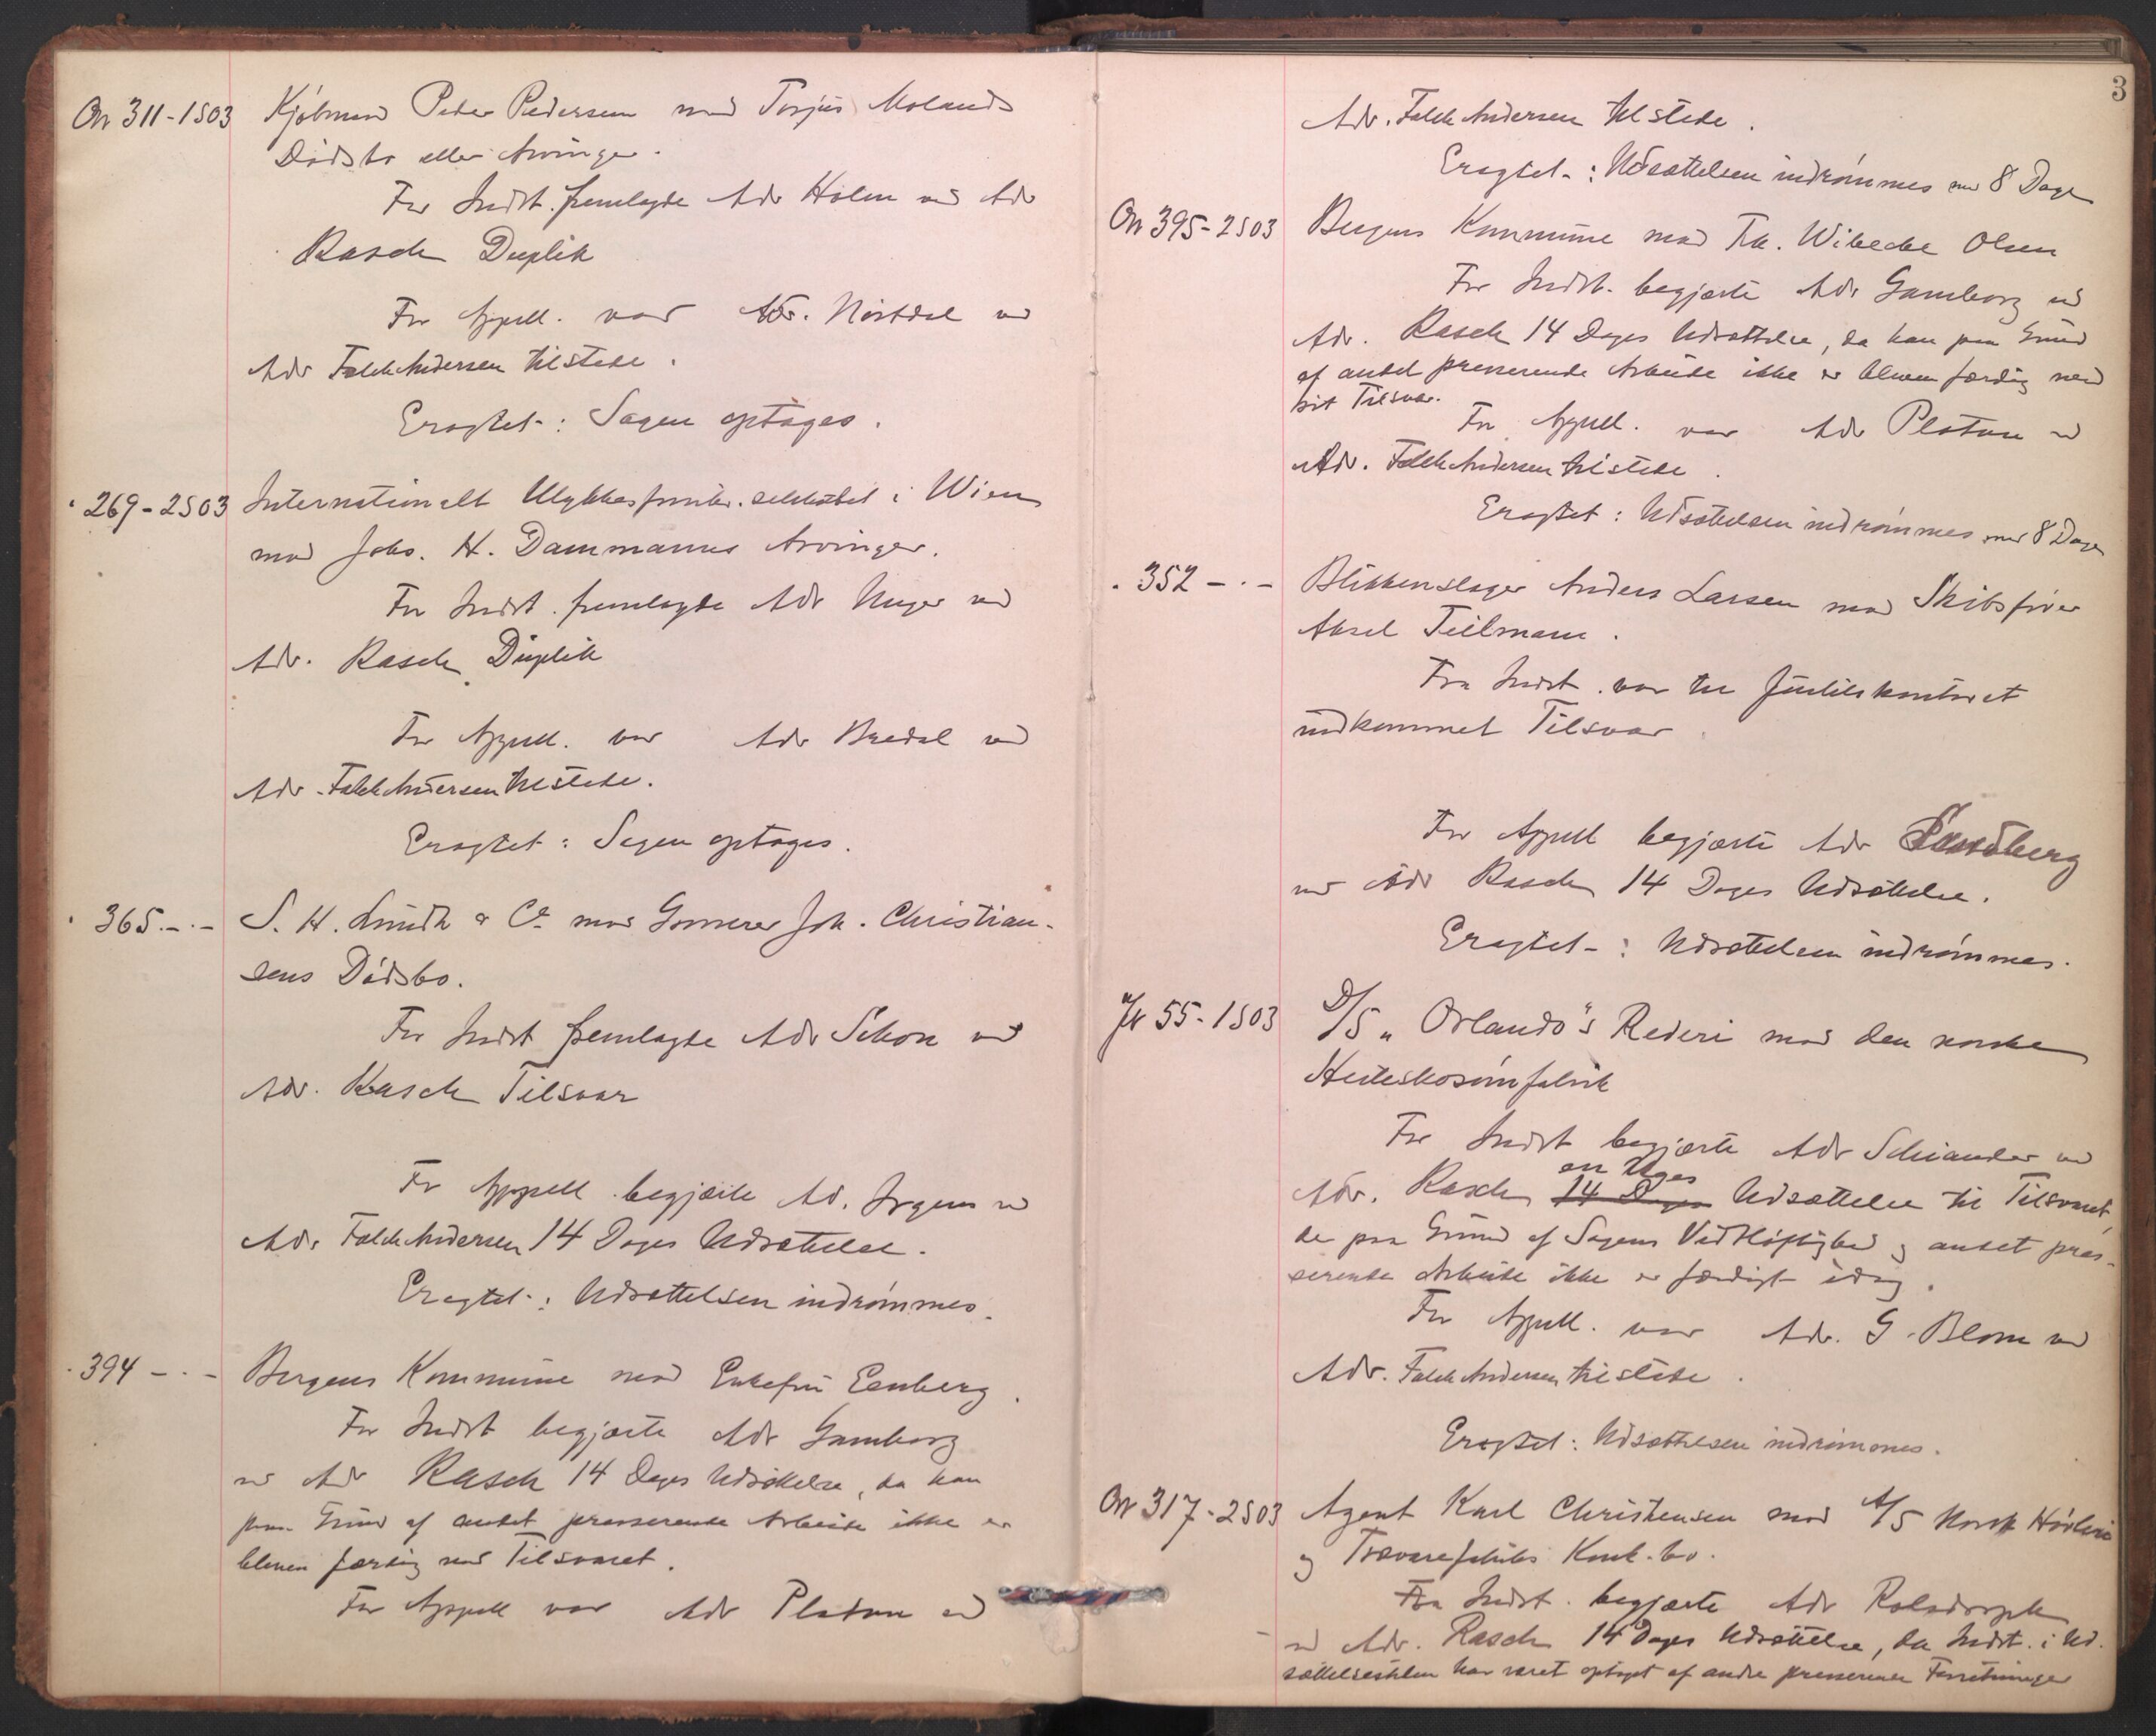 On 311-1S03 Kjøbmand Peder Pedersen mod Torjus Molands
Dødsbo eller Arvinger.
For Indst. fremlagde Adv Holm ved Adv
Rasch Duplik
For Appell. var Adv. Nørtdal ved
Adv Falch Andersen tilstede.
Eragtet: Sagen optages.
" 269-2S03 Internationalt Ulykkesforsikr. selskabet i Wien
mod Johs. H. Dammanns Arvinger.
For Indst. fremlagde Adv Unger ved
Adv. Rasch Duplik
For Appell. var Adv Bredal ved
Adv. Falch Andersen tilstede.
Eragtet: Sagen optages.
" 365 - " - S. H. Lundh & Co mod Gross. Joh. Christian-
sens Dødsbo.
For Indst fremlagde Adv Schou ved
Adv. Rasch Tilsvar
For Appell. begjærte Ad. Irgens ved
Adv Falch Andersen 14 Dages Udsættelse.
Eragtet: Udsættelsen indrømmes.
" 394 - " - Bergens Kommune mod Enkefru Eenberg.
For Indst begjærte Adv Gamborg
ved Adv Rasch 14 Dages Udsættelse, da han
paa Grund af andet presserende Arbeide ikke er
bleven færdig med Tilsvaret.
For Appell var Adv Platou ved
3
Adv. Falch Andersen tilstede.
Eragtet: Udsættelsen indrømmes med 8 Dage
On 395-2S03 Bergens Kommune mod Fr. Wibecke Olsen
For Indst. begjærte Adv Gamborg ved
Adv. Rasch 14 Dages Udsættelse, da han paa Grund
af andet presserende Arbeide ikke er bleven færdig med
sit Tilsvar.
For Appell. var Adv Platou ved
Adv. Falch Andersen tilstede.
Eragtet: Udsættelsen indrømmes med 8 Dage
" 352 - " - Blikkenslager Anders Larsen mod Skibsfører
Aksel Teilmann.
Fra Indst. var til Justitskontoret
indkommet Tilsvar.
For Appell begjærte Adv Sandberg
ved Adv Rasch 14 Dages Udsættelse.
Eragtet: Udsættelsen indrømmes.
55-1S03 D/S "Orlando"s Rederi mod den norske
Hesteskosømfabrik
For Indst begjærte Adv Schiander ved
en Uges
Adv. Rasch 14 Dages Udsættelse til Tilsvaret,
da paa Grund af Sagens Vidtløftighed og andet pres-
serende Arbeide ikke er færdigt idag.
For Appell. var Adv. G. Blom ved
Adv. Falch Andersen tilstede.
Eragtet: Udsættelsen indrømmes.
On 317-2S03 Agent Karl Christensen mod A/S Norsk Høvleri
og Trævarefabriks Konk. bo.
Fra Indst. begjærte Adv Rolsdorph
ved Adv. Rasch 14 Dages Udsættelse, da Indst. i Ud-
sættelsestiden har været optaget af andre presserende Forretninger